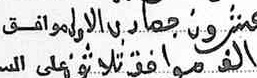 عشرون جمادى الاول موافق
الف موافق ثلاثون على